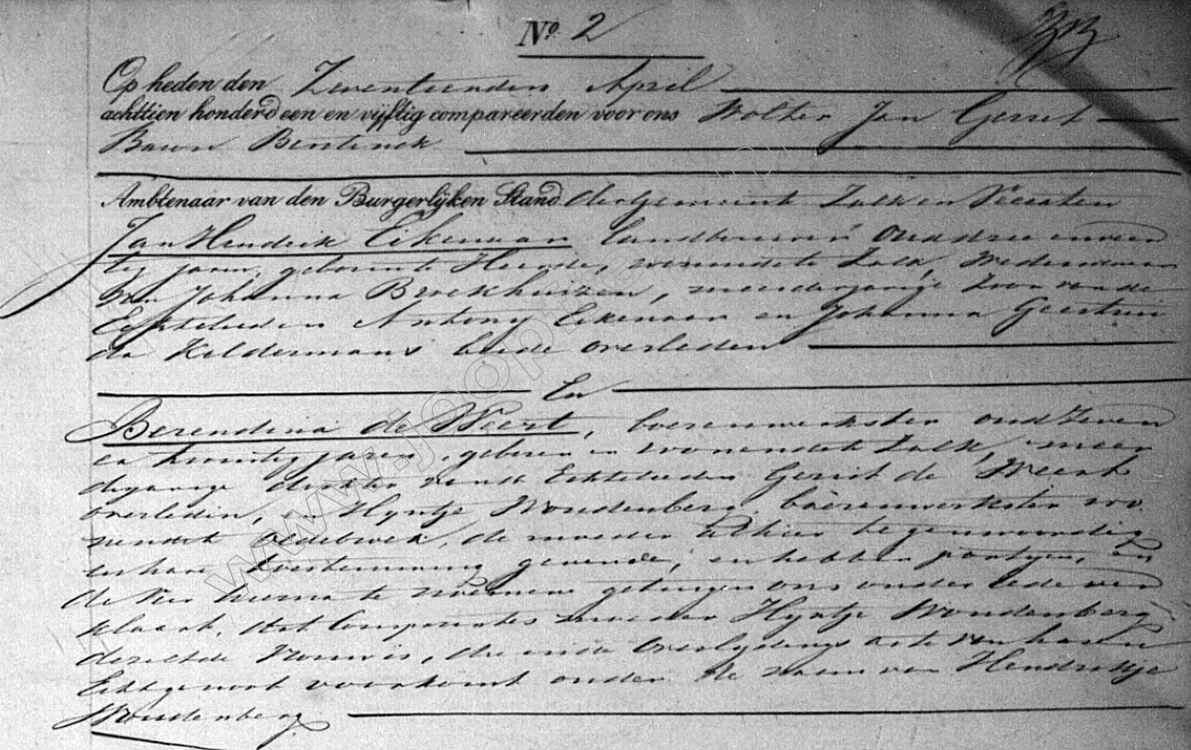 No. 2
Op heden den Zeventienden April
achttien honderd een en vijftig compareerden voor ons Wolter Jan Gerrit
Baron Bentinck
Ambtenaar van den Burgerlijken Stand der Gemeente Zalk en Veecaten
Jan Hendrik Eikenaar landbouwer oud drie en veer
tig jaren, geboren te Heerde, wonende te Zalk, Weduwenaar
van Johanna Broekhuizen, meerderjarige Zoon van de
Echtelieden Antony Eikenaar en Johanna Geertrui
da Keldermans beide overleden
En
Berendina de Weert, boerenwerkster oud Zeven
en twintig jaren, geboren en wonende te Zalk, meer
derjarige dochter van de Echtelieden Gerrit de Weert
overleden, en Hyntje Woudenberg, boerenwerkster wo
nende te Oldebroek, de moeder alhier tegenwoordig
en hare toestemming gevende, en hebben partyen, en
de vier hierna te noemene getuigen ons onder eede ver
klaard, dat Comparantes moeder Hyntje Woudenberg
dezelfde Vrouw is, die in de Overlydens acte van haren
Echtgenoot voorkomt onder de naam van Hendrikje
Woudenberg